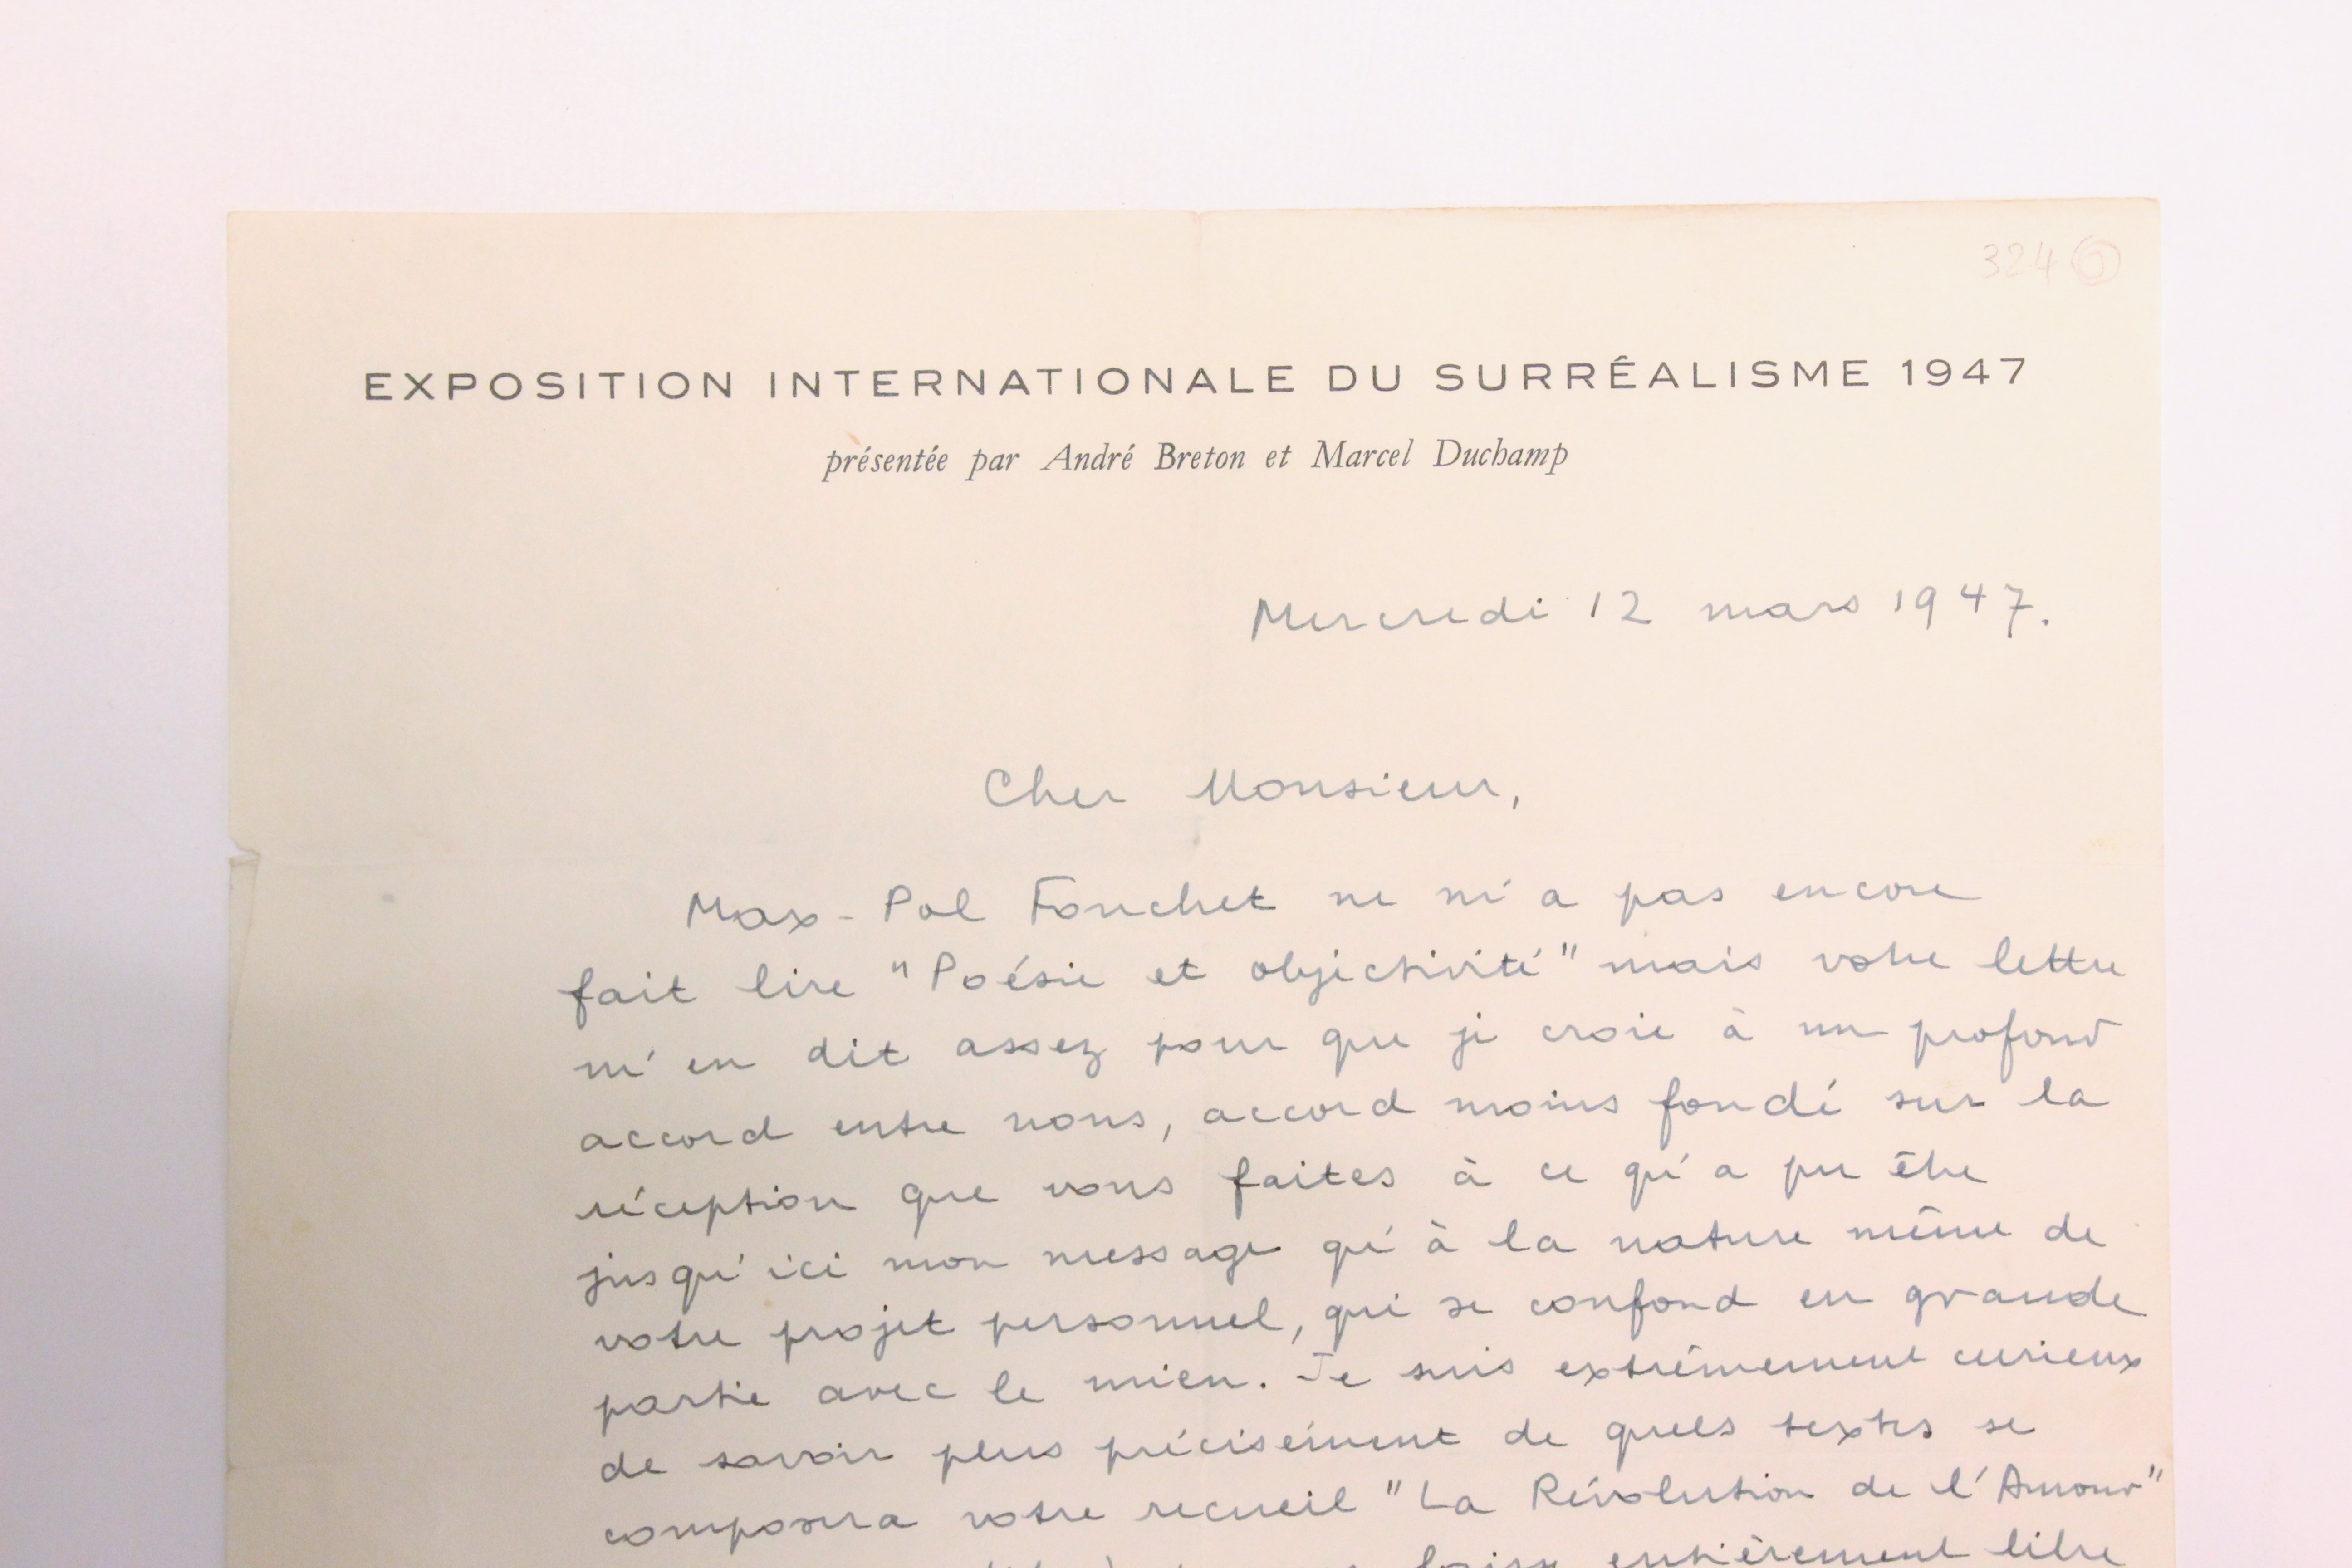 324 6
EXPOSITION INTERNATIONALE DU SURRÉALISME 1947
présentée par André Breton et Marcel Duchamp
Mercredi 12 mars 1947.
Cher Monsieur,
Max-Pol Fouchet ne m'a pas encore
fait lire "Poésie et objectivité" mais votre lettre
m'en dit assez pour que je croie à un profond
accord entre nous, accord moins fondé sur la
réception que vous faites à ce qu'a pu être
jusqu'ici mon message qu'à la nature même de
votre projet personnel, qui se confond en grande
partie avec le mien. Je suis extrêmement curieux
de savoir plus précisément de quels textes se
composera votre recueil "La Révolution de l'Amour"
entièrement libre